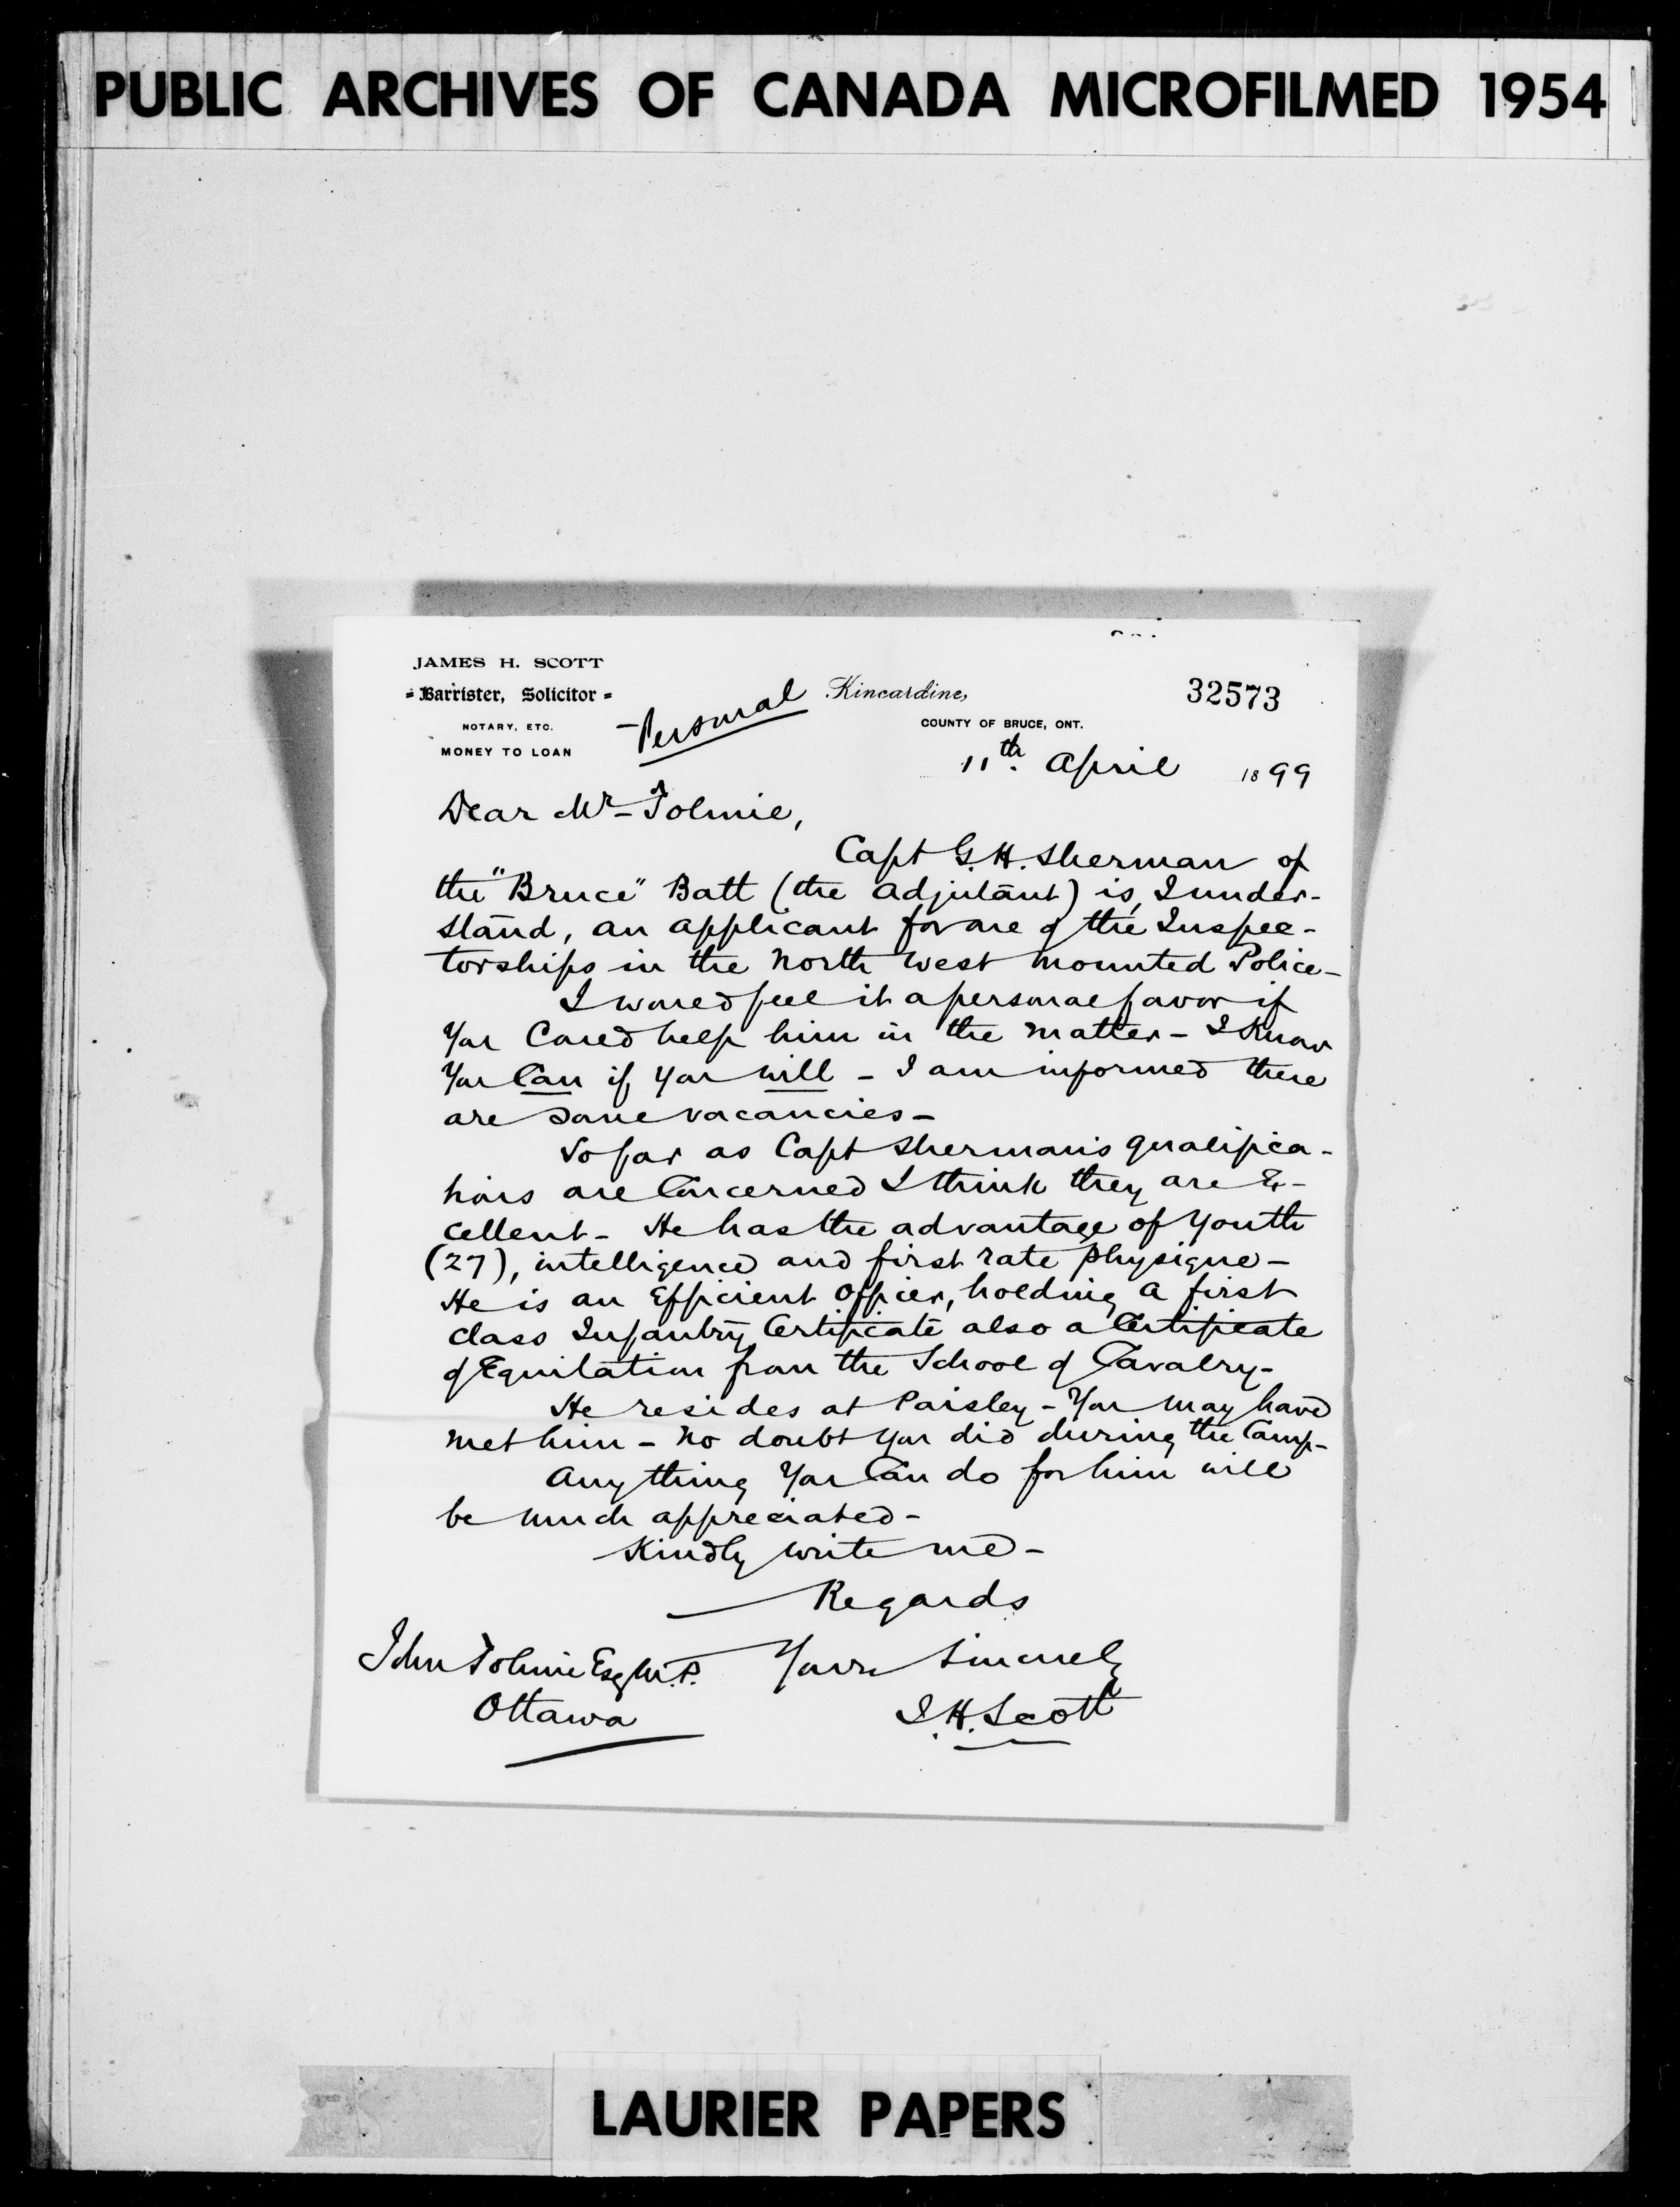 PUBLIC ARCHIVES OF CANADA MICROFILMED 1954
JAMES H. SCOTT
Barrister, Solicitor
NOTARY, ETC.
MONEY TO LOAN
Personal
Kincardine,
COUNTY OF BRUCE, ONT.
32573
11th April 1899
Dear Mr Tolmie,
Capt G. H. Sherman of
the "Bruce" Batt (the Adjutant) is, I under-
stand, an applicant for one of the Inspec-
torships in the North West Mounted Police-
I would feel it a personal favor if
you could help him in the matter - I know
you can if you will - I am informed there
are some vacancies -
So far as Capt Sherman's qualifica-
tions are concerned I think they are Ex-
cellent - He has the advantage of youth
(27), intelligence and first rate physique -
He is an Efficient Officer, holding a first
class Infantry Certificate also a Certificate
of Equitation from the School of Cavalry -
He resides at Paisley - You may have
met him - no doubt you did during the Camp-
Anything you can do for him will
be much appreciated -
Kindly write me -
Regards
Yours Sincerely
J. H. Scott
John Tolmie Esq M.P.
Ottawa
LAURIER PAPERS